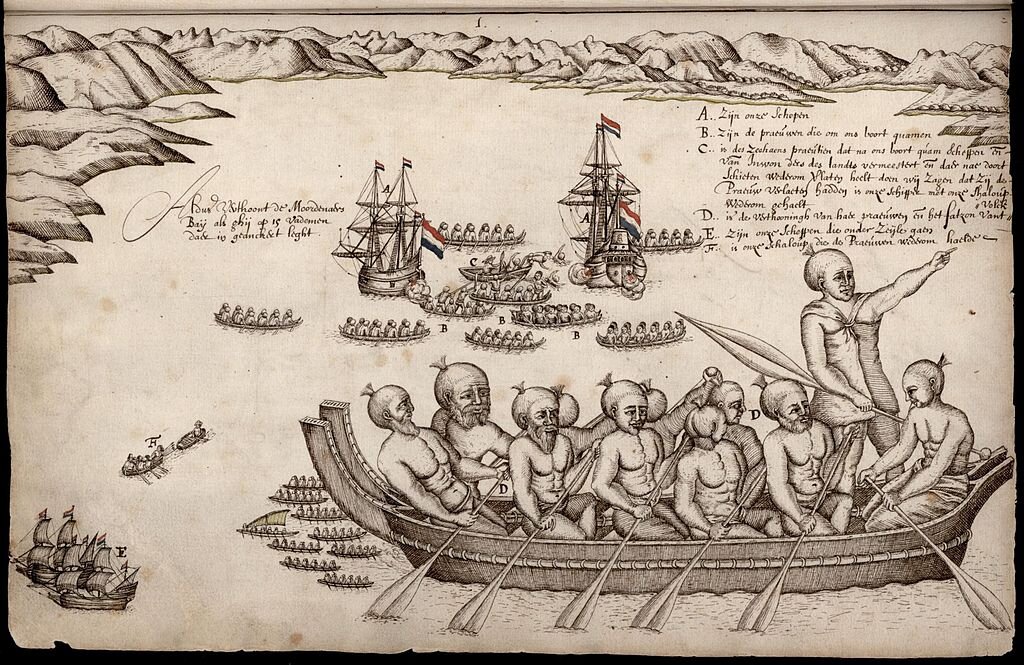 1.
A.. Zijn onze Schepen
B. Zijn de praeuwen die om ons boort quamen
C.. is des Zeehaens praeutien dat na ons boort quam Scheppen en
van Inwon ders des landts vermeestert en daer nae doort
Schieten wederom Vlaten heelt doen wij Zagen dat Zij de
Praeuw Verlaeten hadden is onze Schipper met onze Shaloup
Wederom gehaelt
Volck
D. is de Verthooningh van haer praeuwen en het fatzon Vant
E. Zijn onze Scheepen die onder Zeijle gaen
F.. is onze Schaloup die de Praeuwen wederom haelde
Aldus Verthoont de Moordenaers
Baij als ghij op 15 Vademen
daer in geanckert leght.
A
A
B
C
B
B
B
D
D
F
E